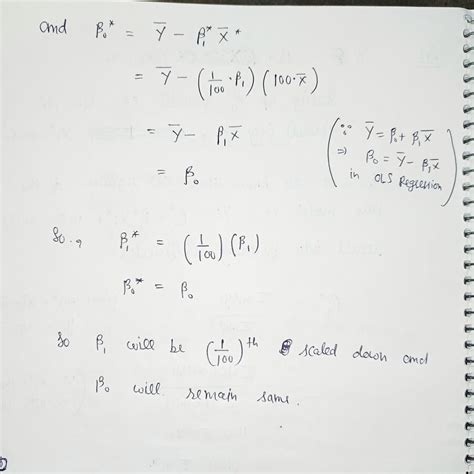 and β₀* = Y̅ - β₁* X̅*
= Y̅ - (1/100 · β₁) (100·X̅)
= Y̅ - β₁X̅
= β₀
(∵ Y̅ = β₀ + β₁X̅
⇒ β₀ = Y̅ - β₁X̅
in OLS Regression)
So, β₁* = (1/100) (β₁)
β₀* = β₀
So β₁ will be (1/100)th scaled down and
β₀ will remain same.